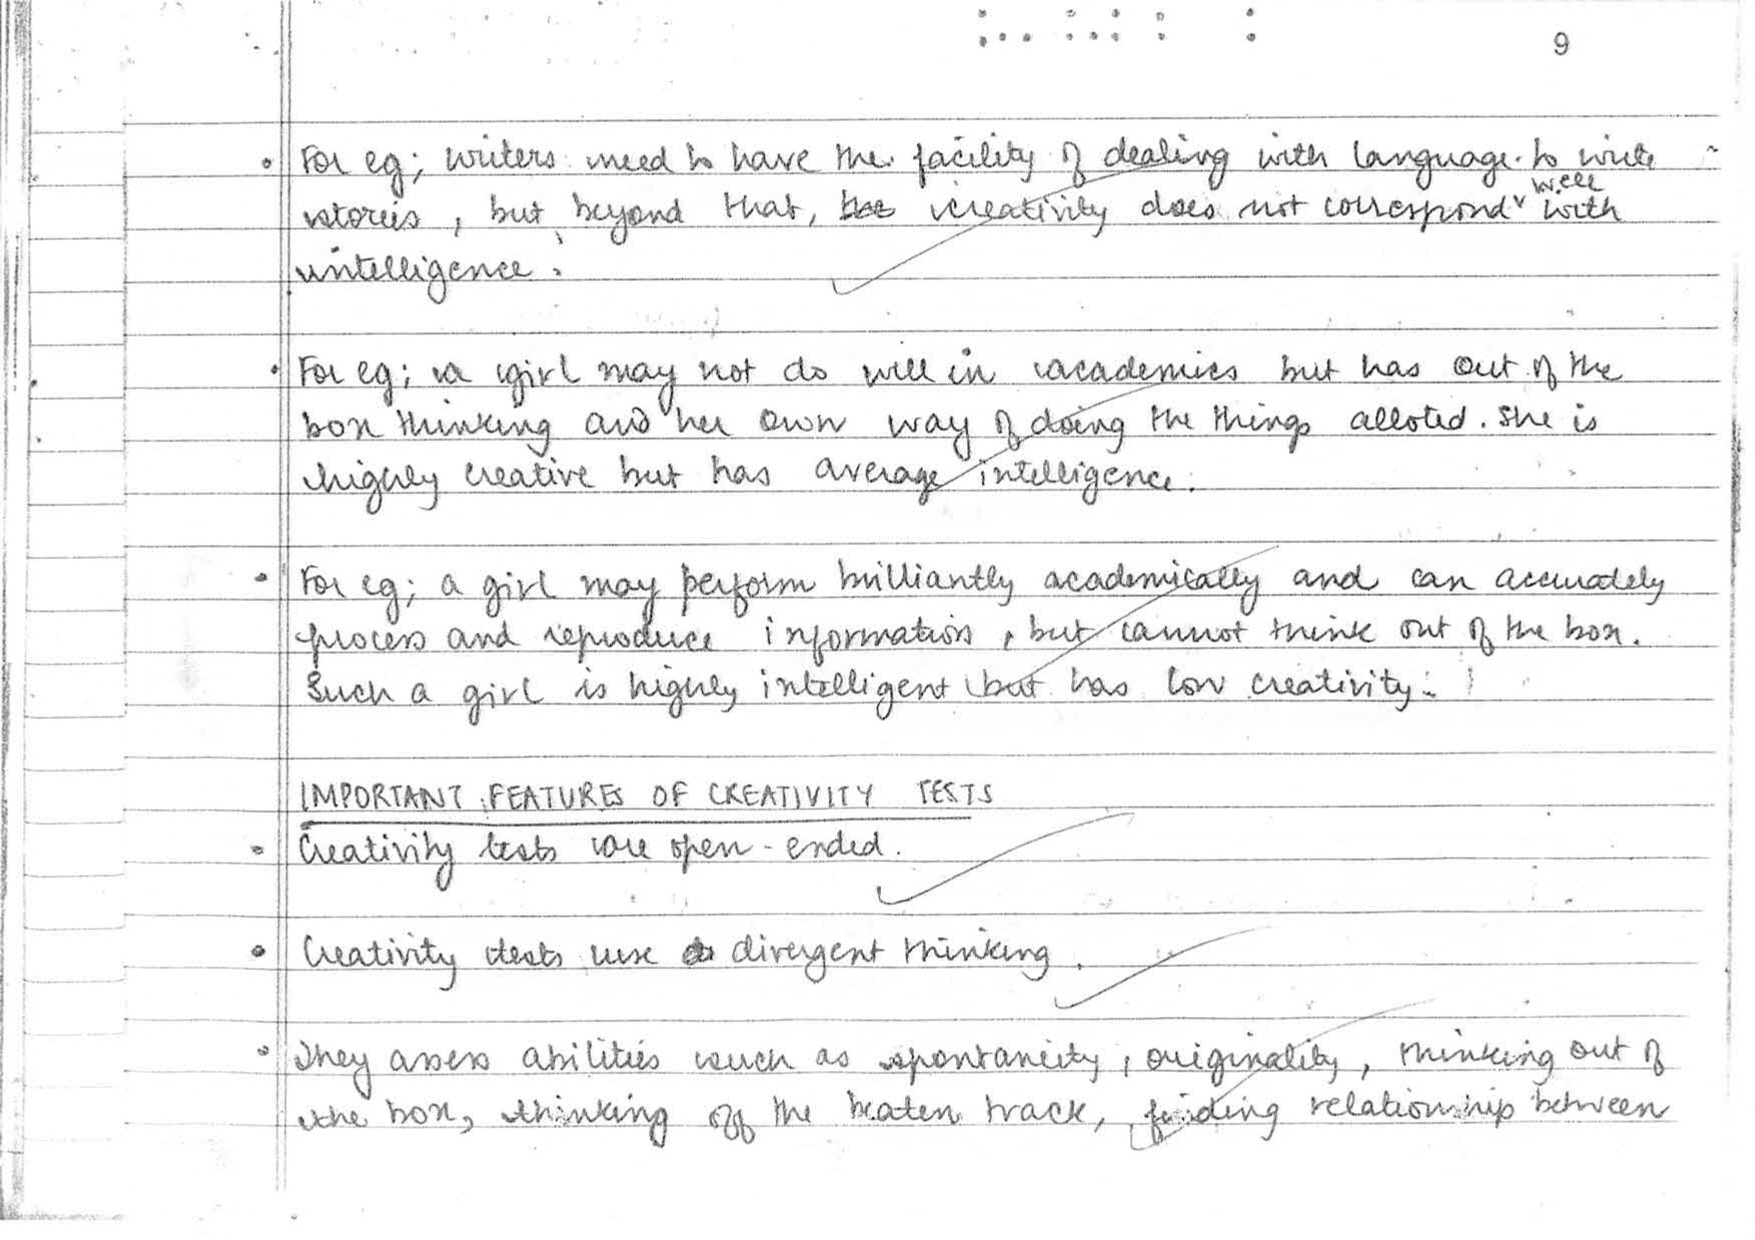 9
• For eg; writers need to have the facility of dealing with language to write
stories, but beyond that, creativity does not correspond well with
intelligence.
• For eg; a girl may not do well in academics but has out of the
box thinking and her own way of doing the things alloted. She is
highly creative but has average intelligence.
• For eg; a girl may perform brilliantly academically and can accurately
process and reproduce information, but cannot think out of the box.
Such a girl is highly intelligent but has low creativity.
IMPORTANT FEATURES OF CREATIVITY TESTS
• Creativity tests are open-ended.
• Creativity tests use divergent thinking.
• They assess abilities such as spontaneity, originality, thinking out of
the box, thinking off the beaten track, finding relationship between